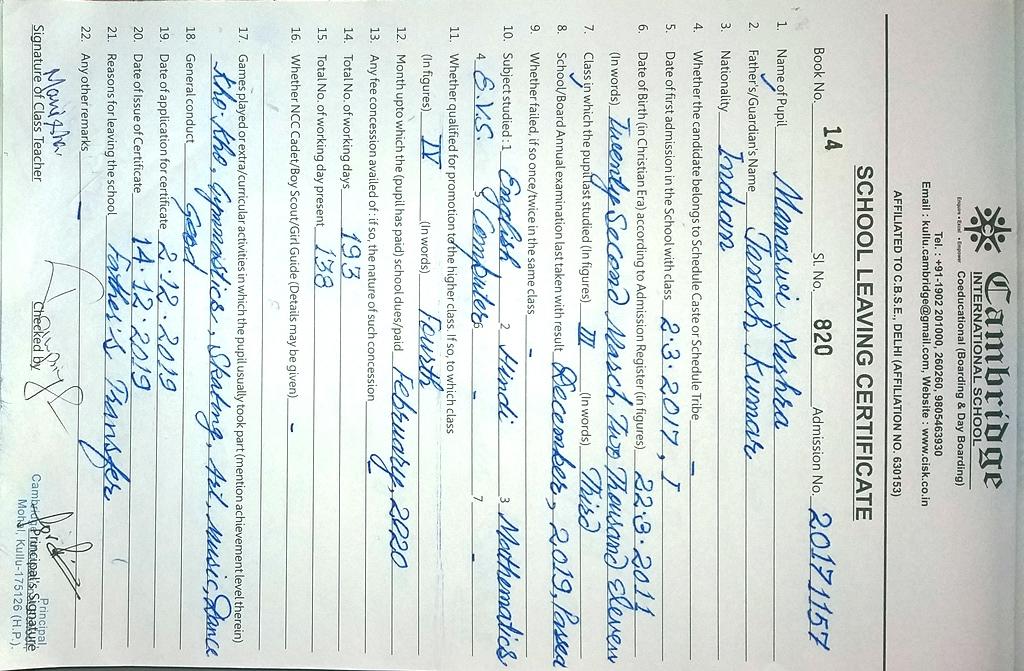 Cambridge
INTERNATIONAL SCHOOL
Enquire • Excel • Empower
Coeducational (Boarding & Day Boarding)
Tel. : +91-1902 201000, 260260, 9805463930
Email : kullu.cambridge@gmail.com, Website : www.cisk.co.in
AFFILIATED TO C.B.S.E., DELHI (AFFILIATION NO. 630153)
SCHOOL LEAVING CERTIFICATE
Book No. 14 Sl. No. 820 Admission No. 20171157
1. Name of Pupil Manasvi Mishra
2. Father's/Guardian's Name Tanesh Kumar
3. Nationality Indian
4. Whether the candidate belongs to Schedule Caste or Schedule Tribe -
5. Date of first admission in the School with class 2.3.2017, I
6. Date of Birth (in Christian Era) according to Admission Register (in figures) 22.3.2011
(In words) Twenty Second March, Two Thousand Eleven
7. Class in which the pupil last studied (In figures) III (In words) Third
8. School/Board Annual examination last taken with result December, 2019, Passed
9. Whether failed, if so once/twice in the same class -
10. Subject studied: 1 English 2 Hindi 3 Mathematics
4 E.V.S. 5 Computer 6 - 7 -
11. Whether qualified for promotion to the higher class. If so, to which class
(In figures) IV (In words) Fourth
12. Month upto which the (pupil has paid) school dues/paid February, 2020
13. Any fee concession availed of : if so, the nature of such concession
14. Total No. of working days 193
15. Total No. of working day present 138
16. Whether NCC Cadet/Boy Scout/Girl Guide (Details may be given) -
17. Games played or extra/curricular activities in which the pupil usually took part (mention achievement level therein)
Kho-Kho, Gymnastics, Skating, Art, Music, Dance
18. General conduct Good
19. Date of application for certificate 2.12.2019
20. Date of Issue of Certificate 14.12.2019
21. Reasons for leaving the school Father's Transfer
22. Any other remarks -
Signature of Class Teacher Checked by Principal's Signature
Principal
Mohal, Kullu-175126 (H.P.)